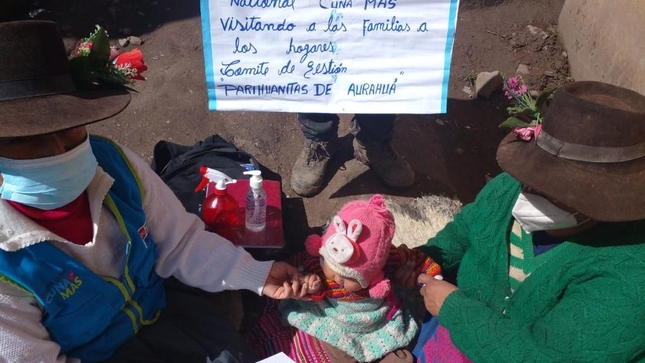 National CUNA MAS
Visitando a las familias a
los hogares
Comite de gestión
"PARIHUANITAS DE AURAHUÁ"
CUNA
MAS